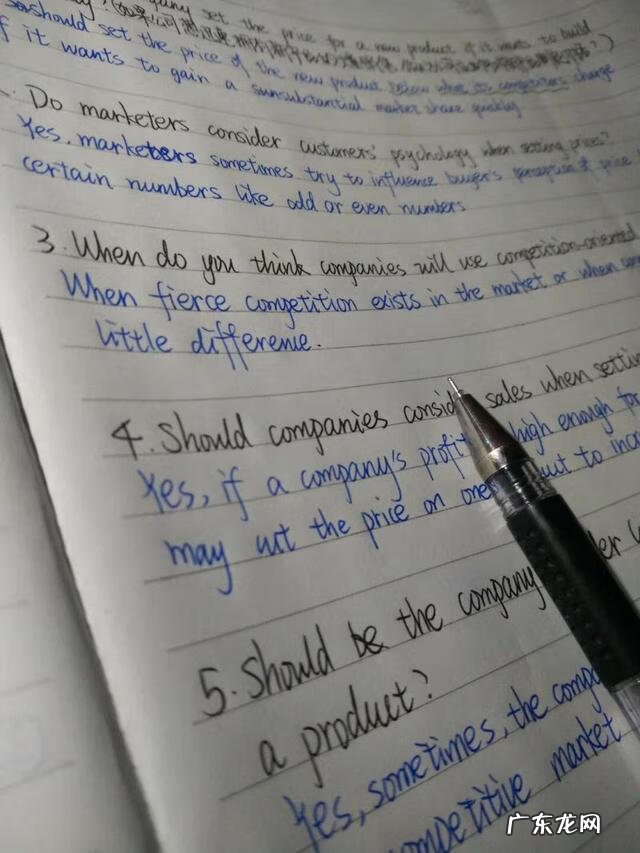 any set the price for a new product if it wants to build
should set the price of the new product below what its competitors charge
if it wants to gain a sunsubstantial market share quickly
Do marketers consider customers' psychology when setting prices?
Yes, marketers sometimes try to influence buyer's perception of price
certain numbers like odd or even numbers
3. When do you think companies will use competition-oriented
When fierce competition exists in the market or when
little difference.
4. Should companies consid sales when settin
Yes, if a company's profit high enough for
may cut the price on one cut to incr
5. Should be the company
a product?
Yes, sometimes, the compa
competitive market
广东龙网